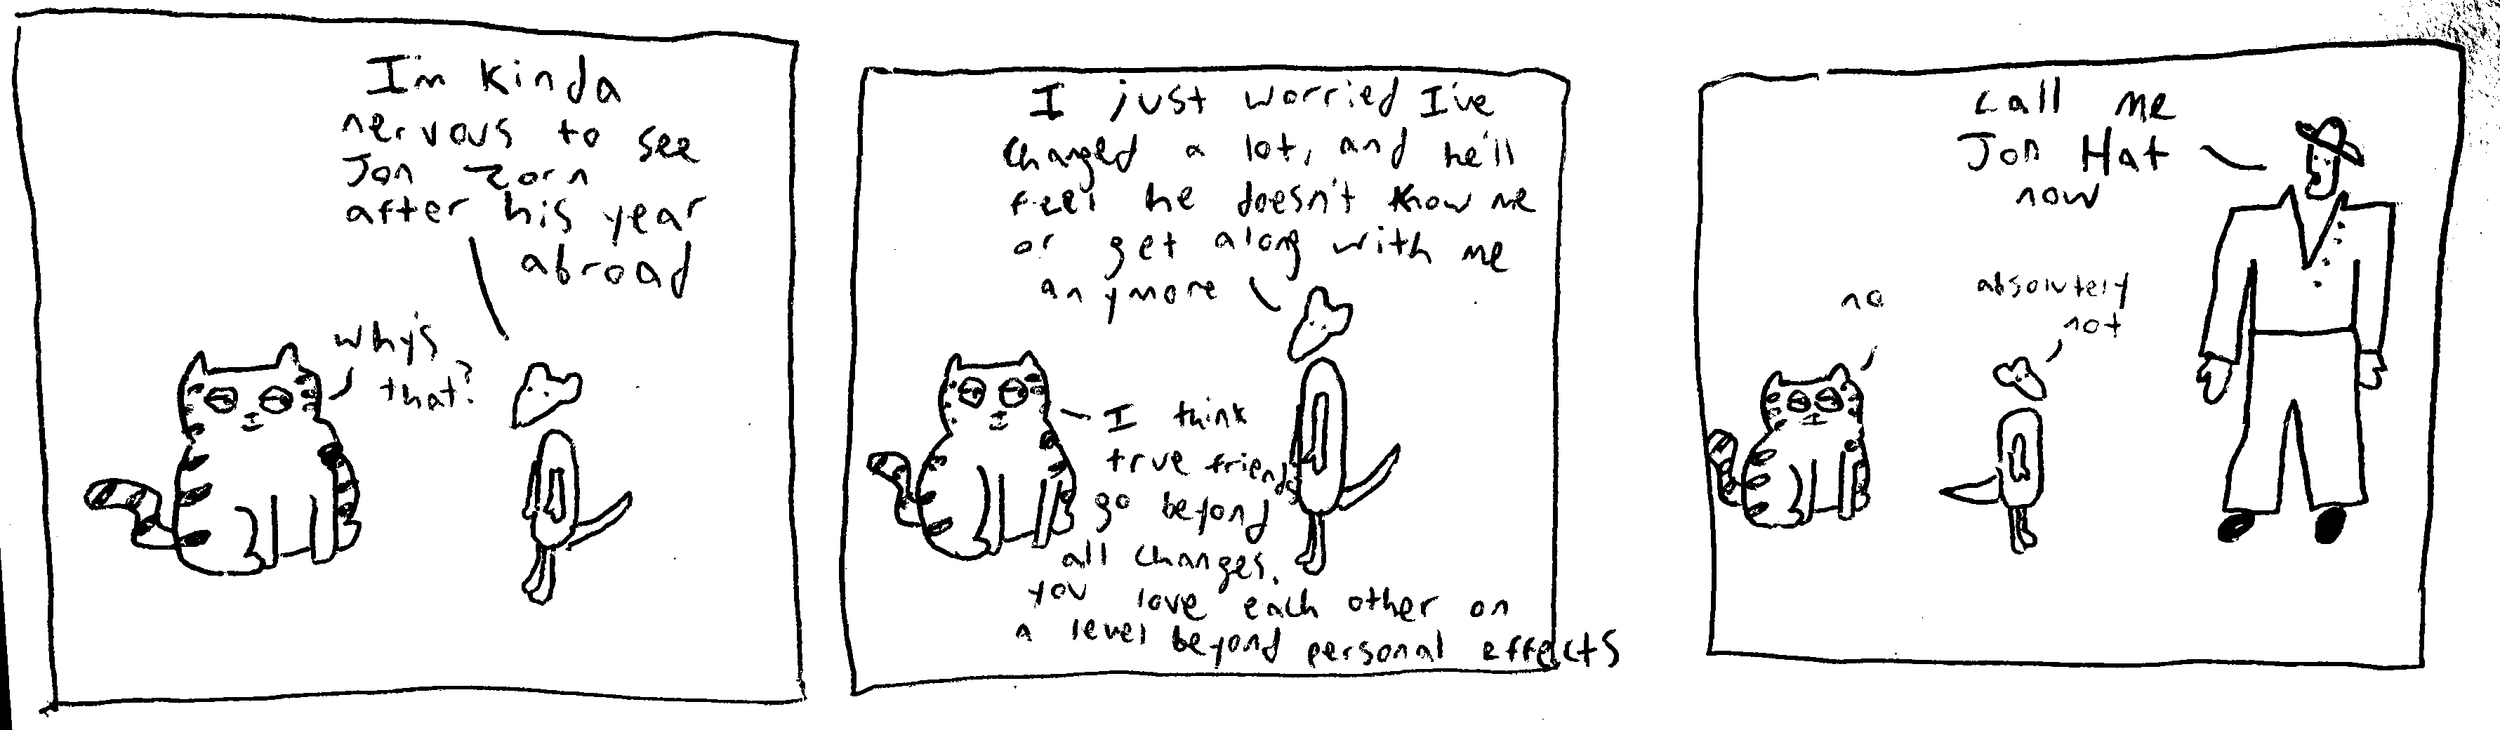 I'm kinda
nervous to see
Jon Zorn
after his year
abroad
why's
that?
I just worried I've
changed a lot, and he'll
feel he doesn't know me
or get along with me
anymore
I think
true friends
go beyond
all changes.
you love each other on
a level beyond personal effects
call me
Jon Hat
now
no
absolutely
not